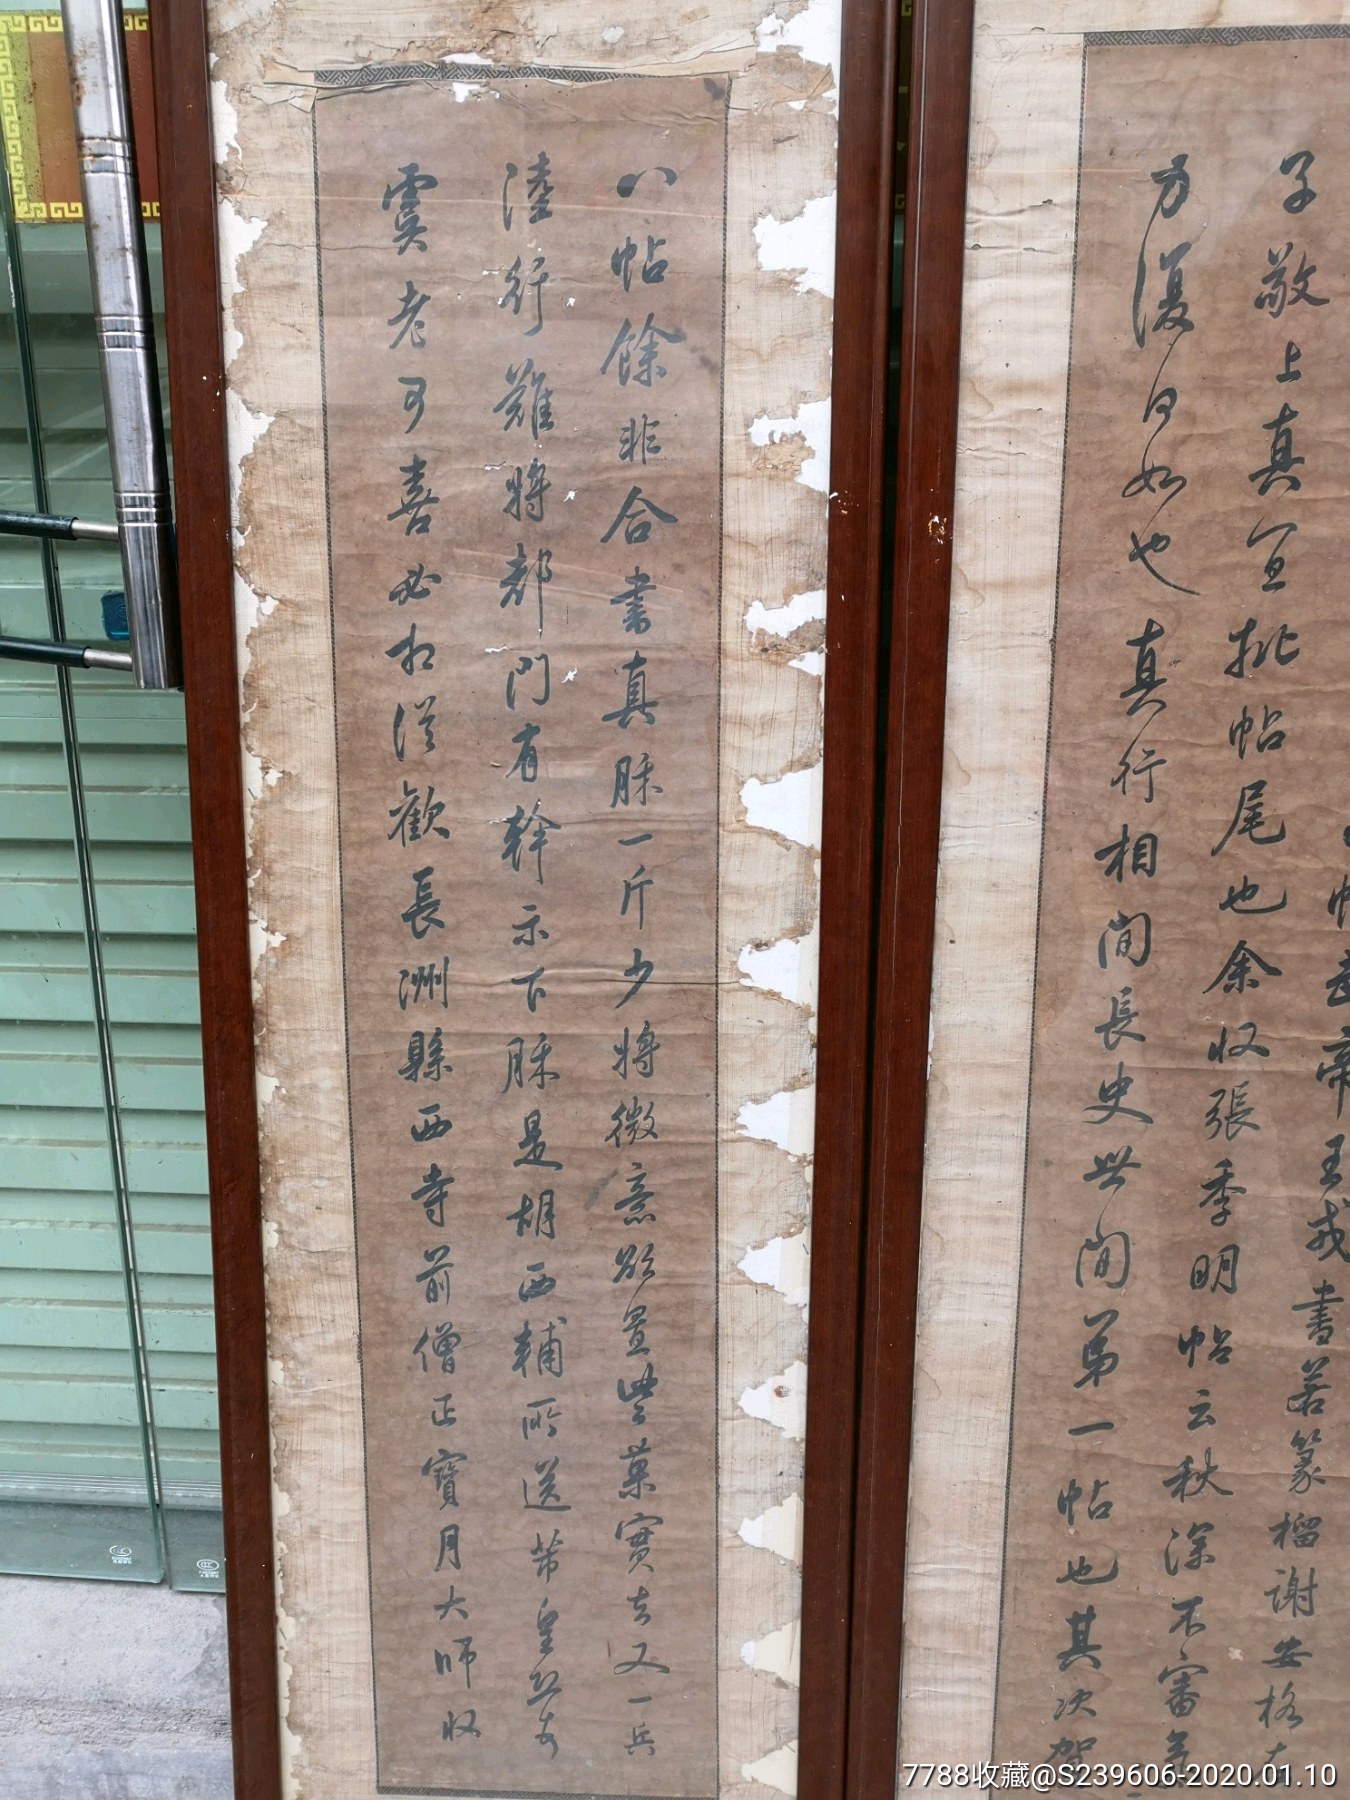 帖武帝王戎書若篆榴謝安格在
子敬上真宜批帖尾也余收張季明帖云秋深不審氣
力復何如也真行相間長史世間第一帖也其次賀
八帖餘非合書真酥一斤少將微意欲置些菓實去又一兵
陸行難將都門有幹示下酥是胡西輔所送芾皇恐
虞老可喜必相從歡長洲縣西寺前僧正寶月大師收
7788收藏@S239606-2020.01.10